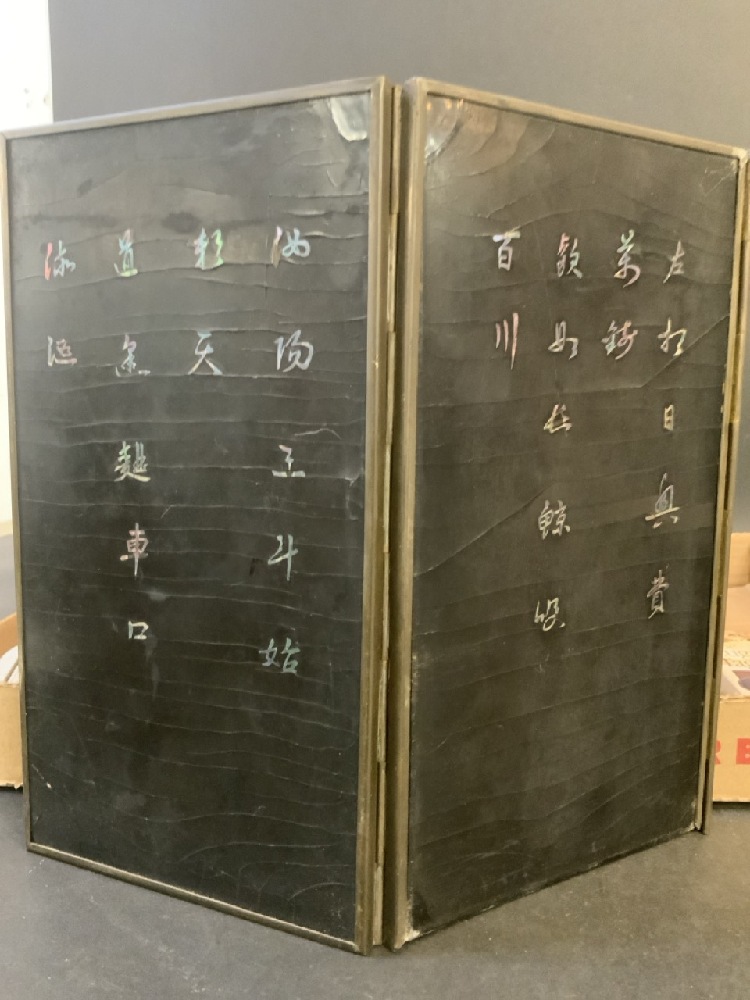 左相日興費
萬錢
飲如長鯨吸
百川
汝陽三斗始
朝天
道逢麴車口
流涎